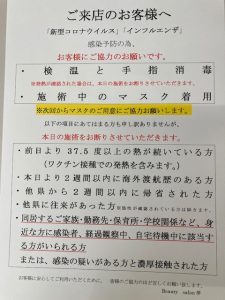 ご来店のお客様へ
「新型コロナウイルス」「インフルエンザ」
感染予防の為、
お客様にご協力のお願いです。
・検温と手指消毒
・施術中のマスク着用
※次回からマスクのご用意にご協力お願いします。
以下の項目にあてはまる方も申し訳ありませんが、
本日の施術をお断りさせていただきます。
・前日より37.5度以上の熱が続いている方
（ワクチン接種での発熱を含みます。）
・本日より2週間以内に海外渡航歴のある方
・他県から2週間以内に帰省された方
・他県に往来があった方
・同居するご家族・勤務先・保育所・学校関係など、身
近な方に感染者、経過観察中、自宅待機中に該当す
る方がいられる方
または、感染の疑いがある方と濃厚接触された方
Beauty salon